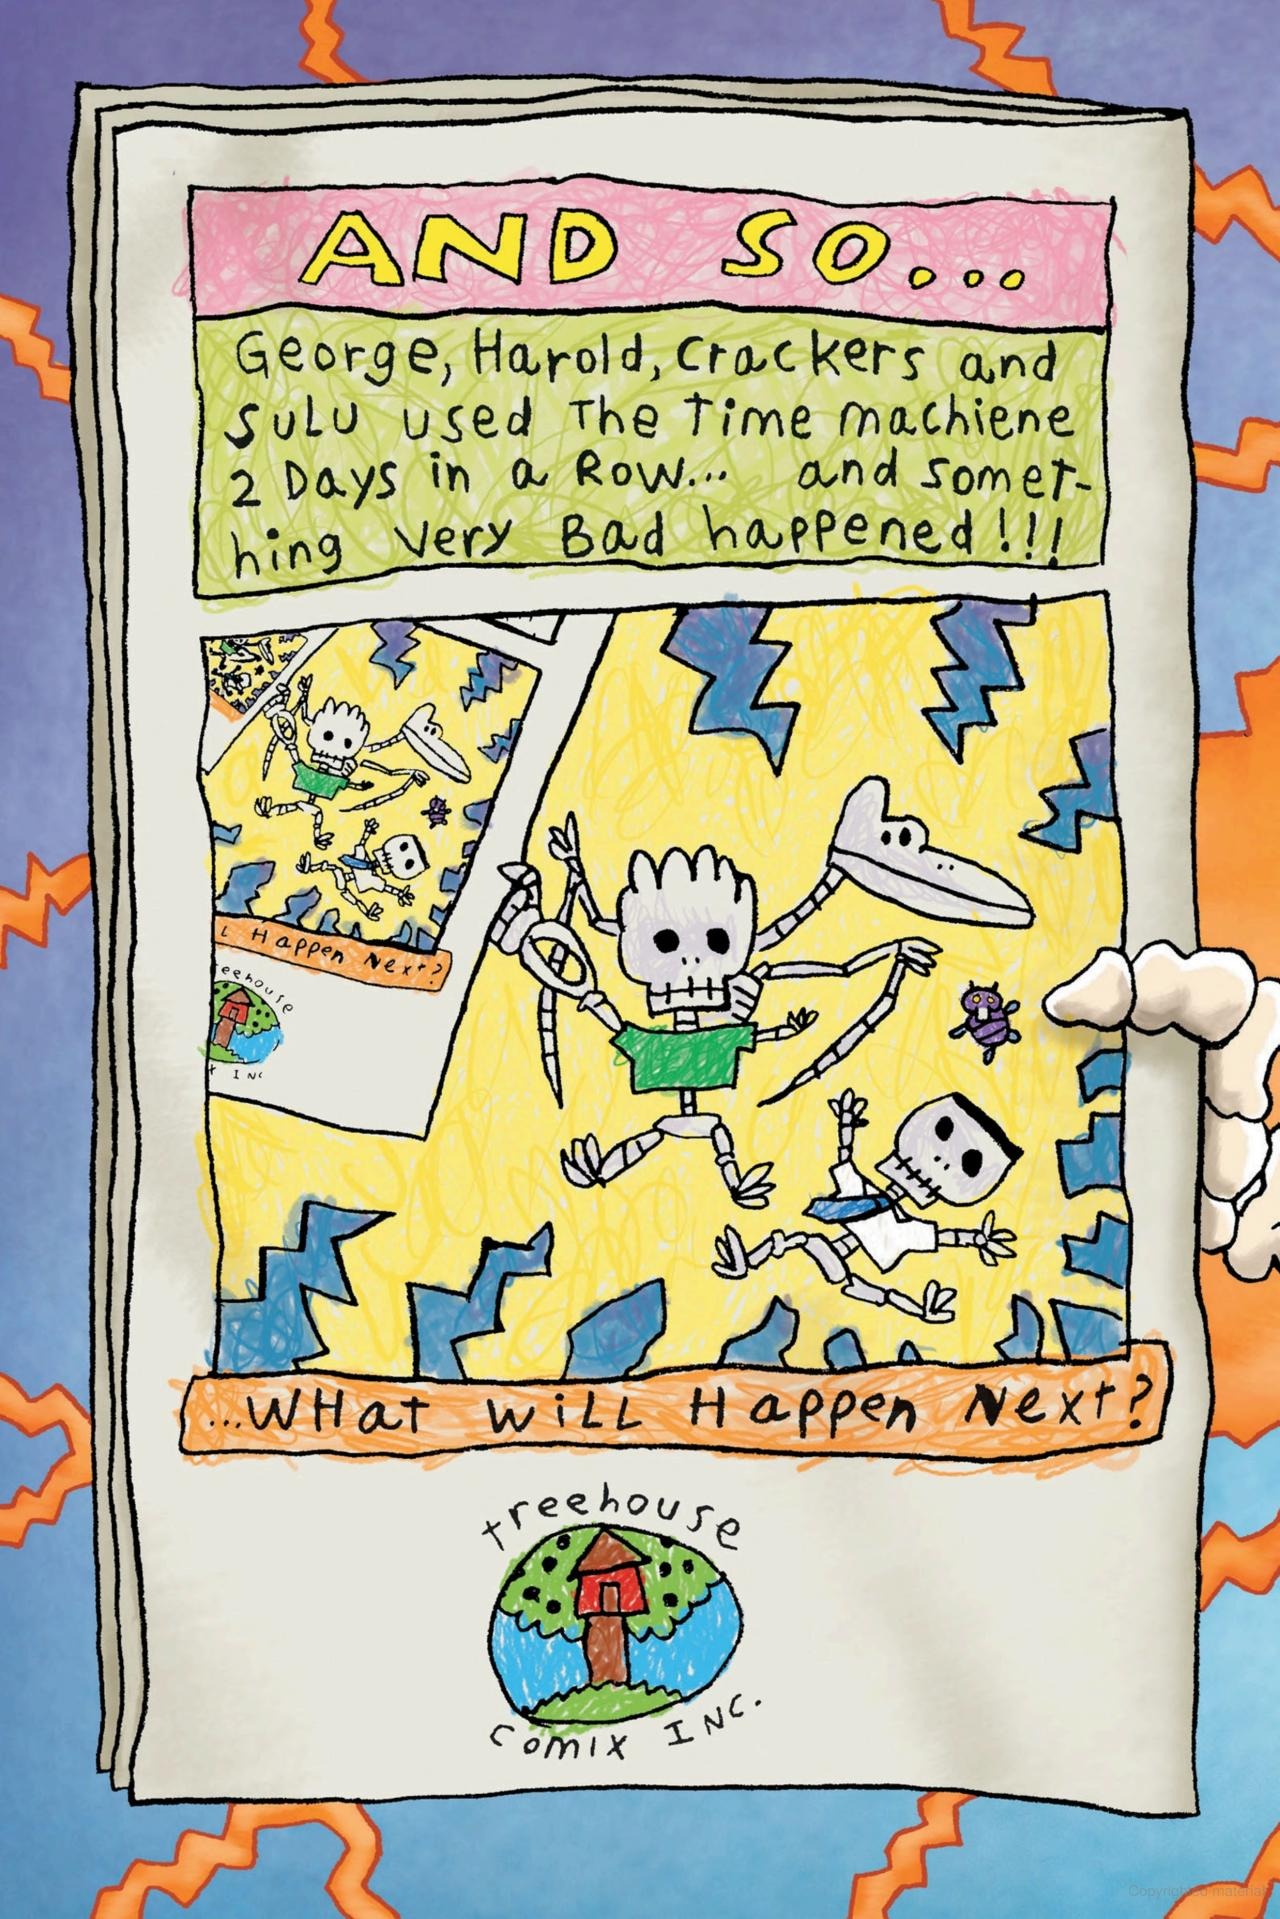 AND SO...
George, Harold, Crackers and
SULU used The Time machiene
2 Days in a Row... and somet-
hing very Bad happened!!!
L Happen Next?
eehouse
X INC
...WHat WiLL Happen Next?
treehouse
comix INC.
Copyrighted material